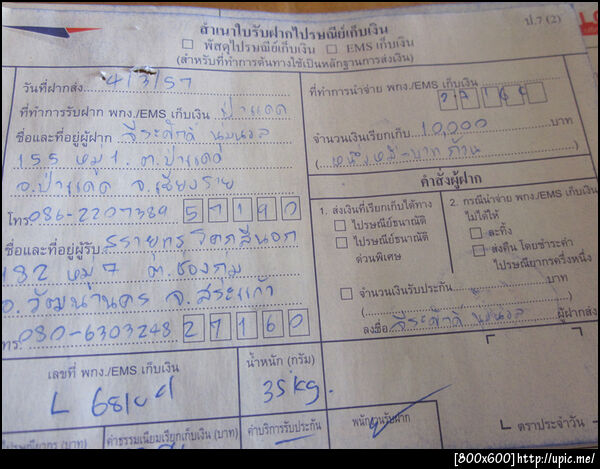 สำเนาใบรับฝากไปรษณีย์เก็บเงิน
ป.7 (2)
☐ พัสดุไปรษณีย์เก็บเงิน ☐ EMS เก็บเงิน
(สำหรับที่ทำการต้นทางใช้เป็นหลักฐานการส่งเงิน)
วันที่ฝากส่ง 4/3/57
ที่ทำการรับฝาก พกง./EMS เก็บเงิน ป่าแดด
ชื่อและที่อยู่ผู้ฝาก ธีระศักดิ์
155 หมู่ 1 ต.ป่าแดด
อ.ป่าแดด จ.เชียงราย
โทร 086-2207389 57190
ชื่อและที่อยู่ผู้รับ
182 หมู่ 7 ต.ช่องกุ่ม
อ.วัฒนานคร จ.สระแก้ว
โทร. 080-6303248 27160
ที่ทำการนำจ่าย พกง./EMS เก็บเงิน
จำนวนเงินเรียกเก็บ 10,000 บาท
( หนึ่งหมื่นบาทถ้วน )
คำสั่งผู้ฝาก
1. ส่งเงินที่เรียกเก็บได้ทาง
☐ ไปรษณีย์ธนาณัติ
☐ ไปรษณีย์ธนาณัติ
ด่วนพิเศษ
2. กรณีนำจ่าย พกง./EMS เก็บเงิน
ไม่ได้ให้
☐ ละทิ้ง
☐ ส่งคืน โดยชำระค่า
ไปรษณียากรครึ่งหนึ่ง
☐ จำนวนเงินรับประกัน บาท
( )
ลงชื่อ ธีระศักดิ์ ผู้ฝากส่ง
เลขที่ พกง./EMS เก็บเงิน
น้ำหนัก (กรัม)
35 kg.
ค่าธรรมเนียมเรียกเก็บเงิน (บาท)
ค่าบริการรับประกัน
พนักงานรับฝาก
ตราประจำวัน
[800x600]http://upic.me/